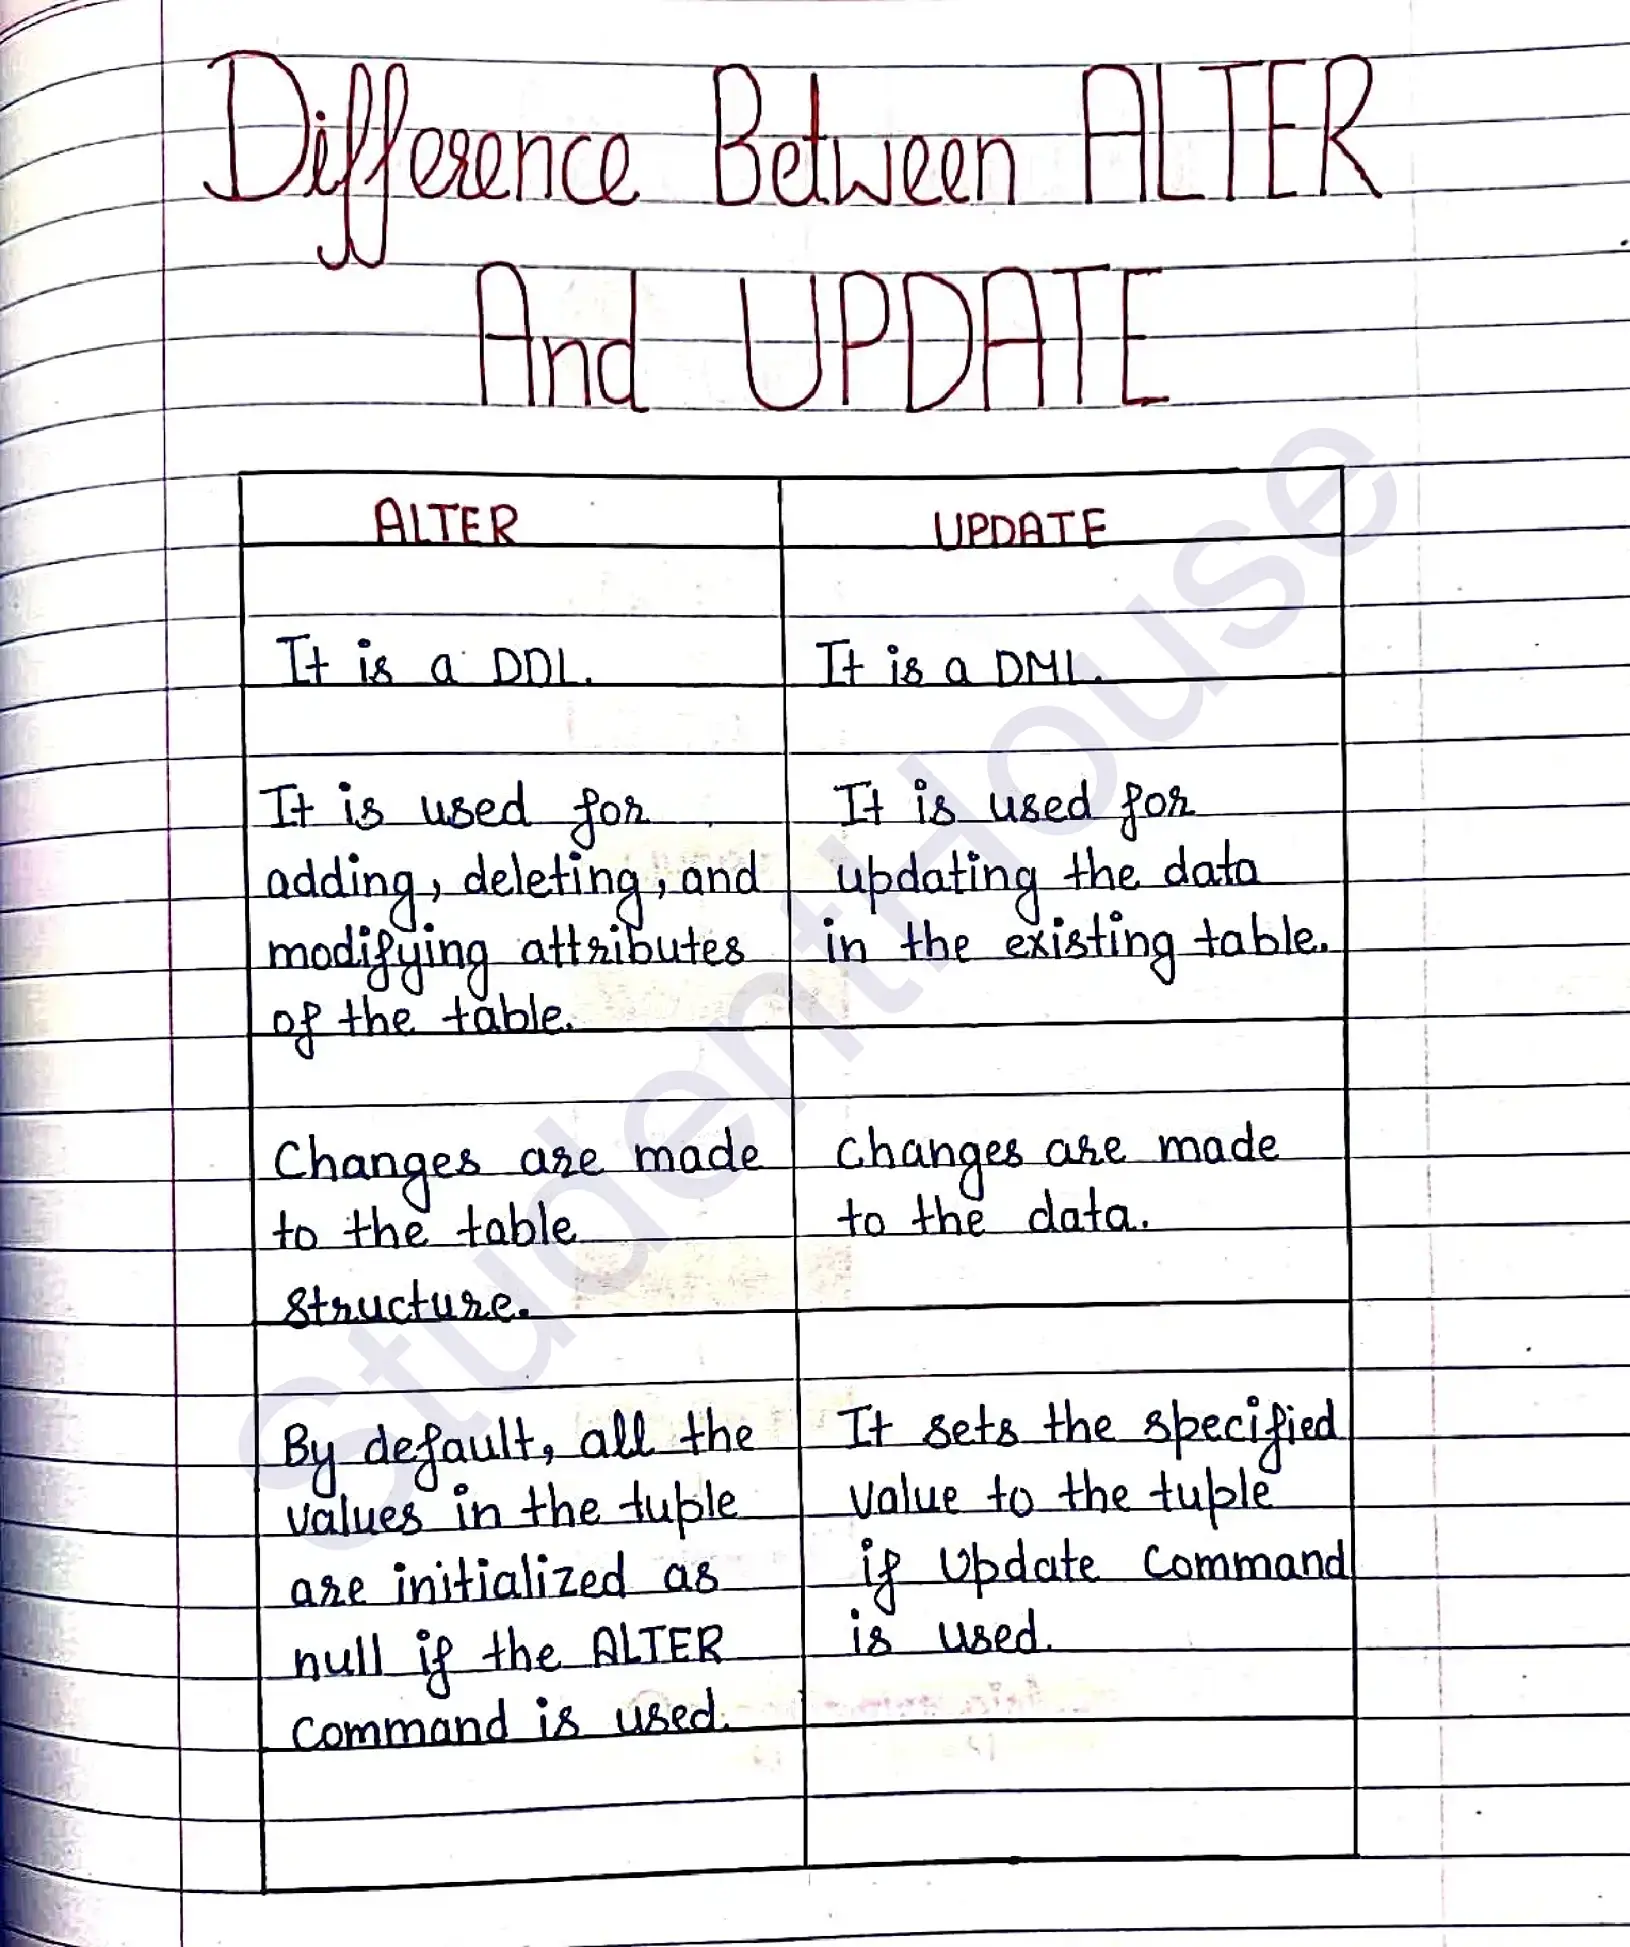 Difference Between ALTER
And UPDATE
ALTER
It is a DDL.
It is used for
adding, deleting, and
modifying attributes
of the table.
Changes are made
to the table
structure.
By default, all the
values in the tuple
are initialized as
null if the ALTER
Command is used.
UPDATE
It is a DML.
It is used for
updating the data
in the existing table.
Changes are made
to the data.
It sets the specified
value to the tuple
if Update Command
is used.
StudentHouse